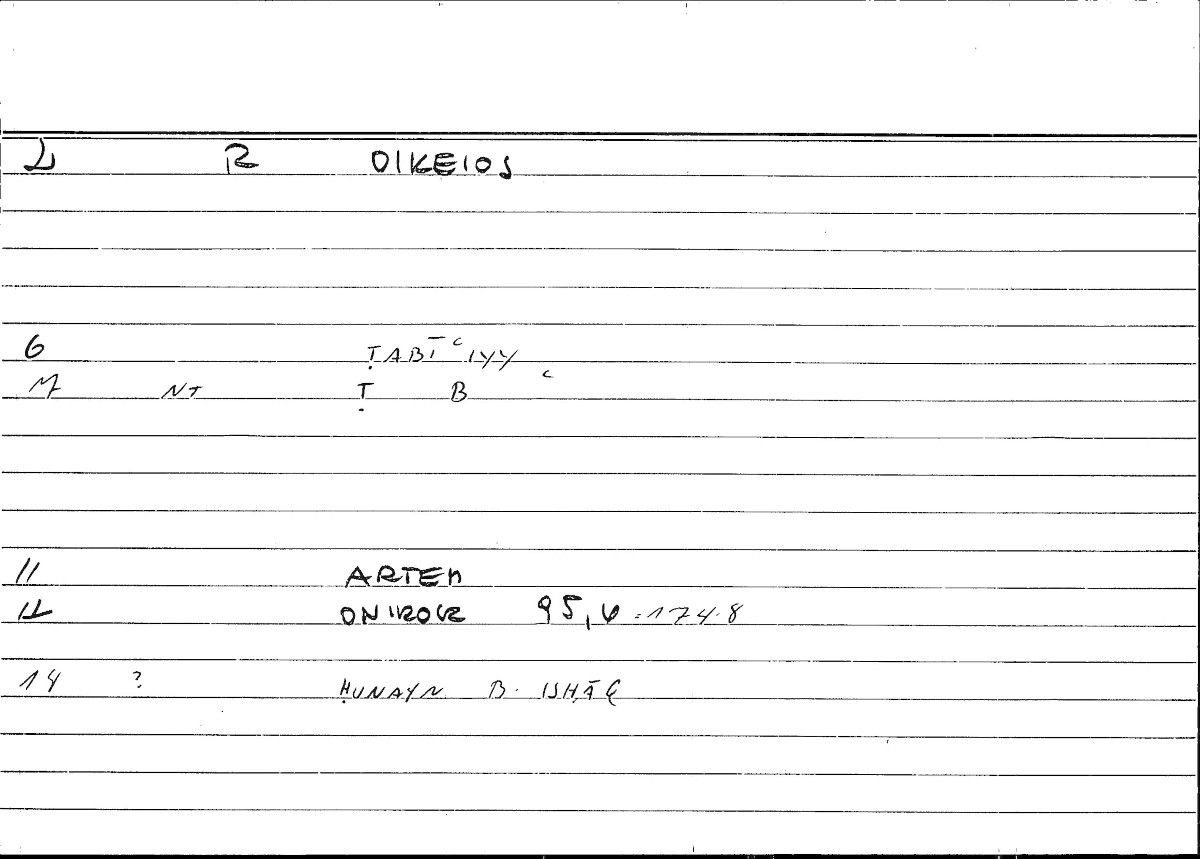 2 R OIKEIOS
6 ṬABĪʿIYY
7 NT Ṭ B ʿ
11 ARTEM
12 ONIROCR 95,6 = 174.8
14 ? ḤUNAYN B. ISḤĀQ